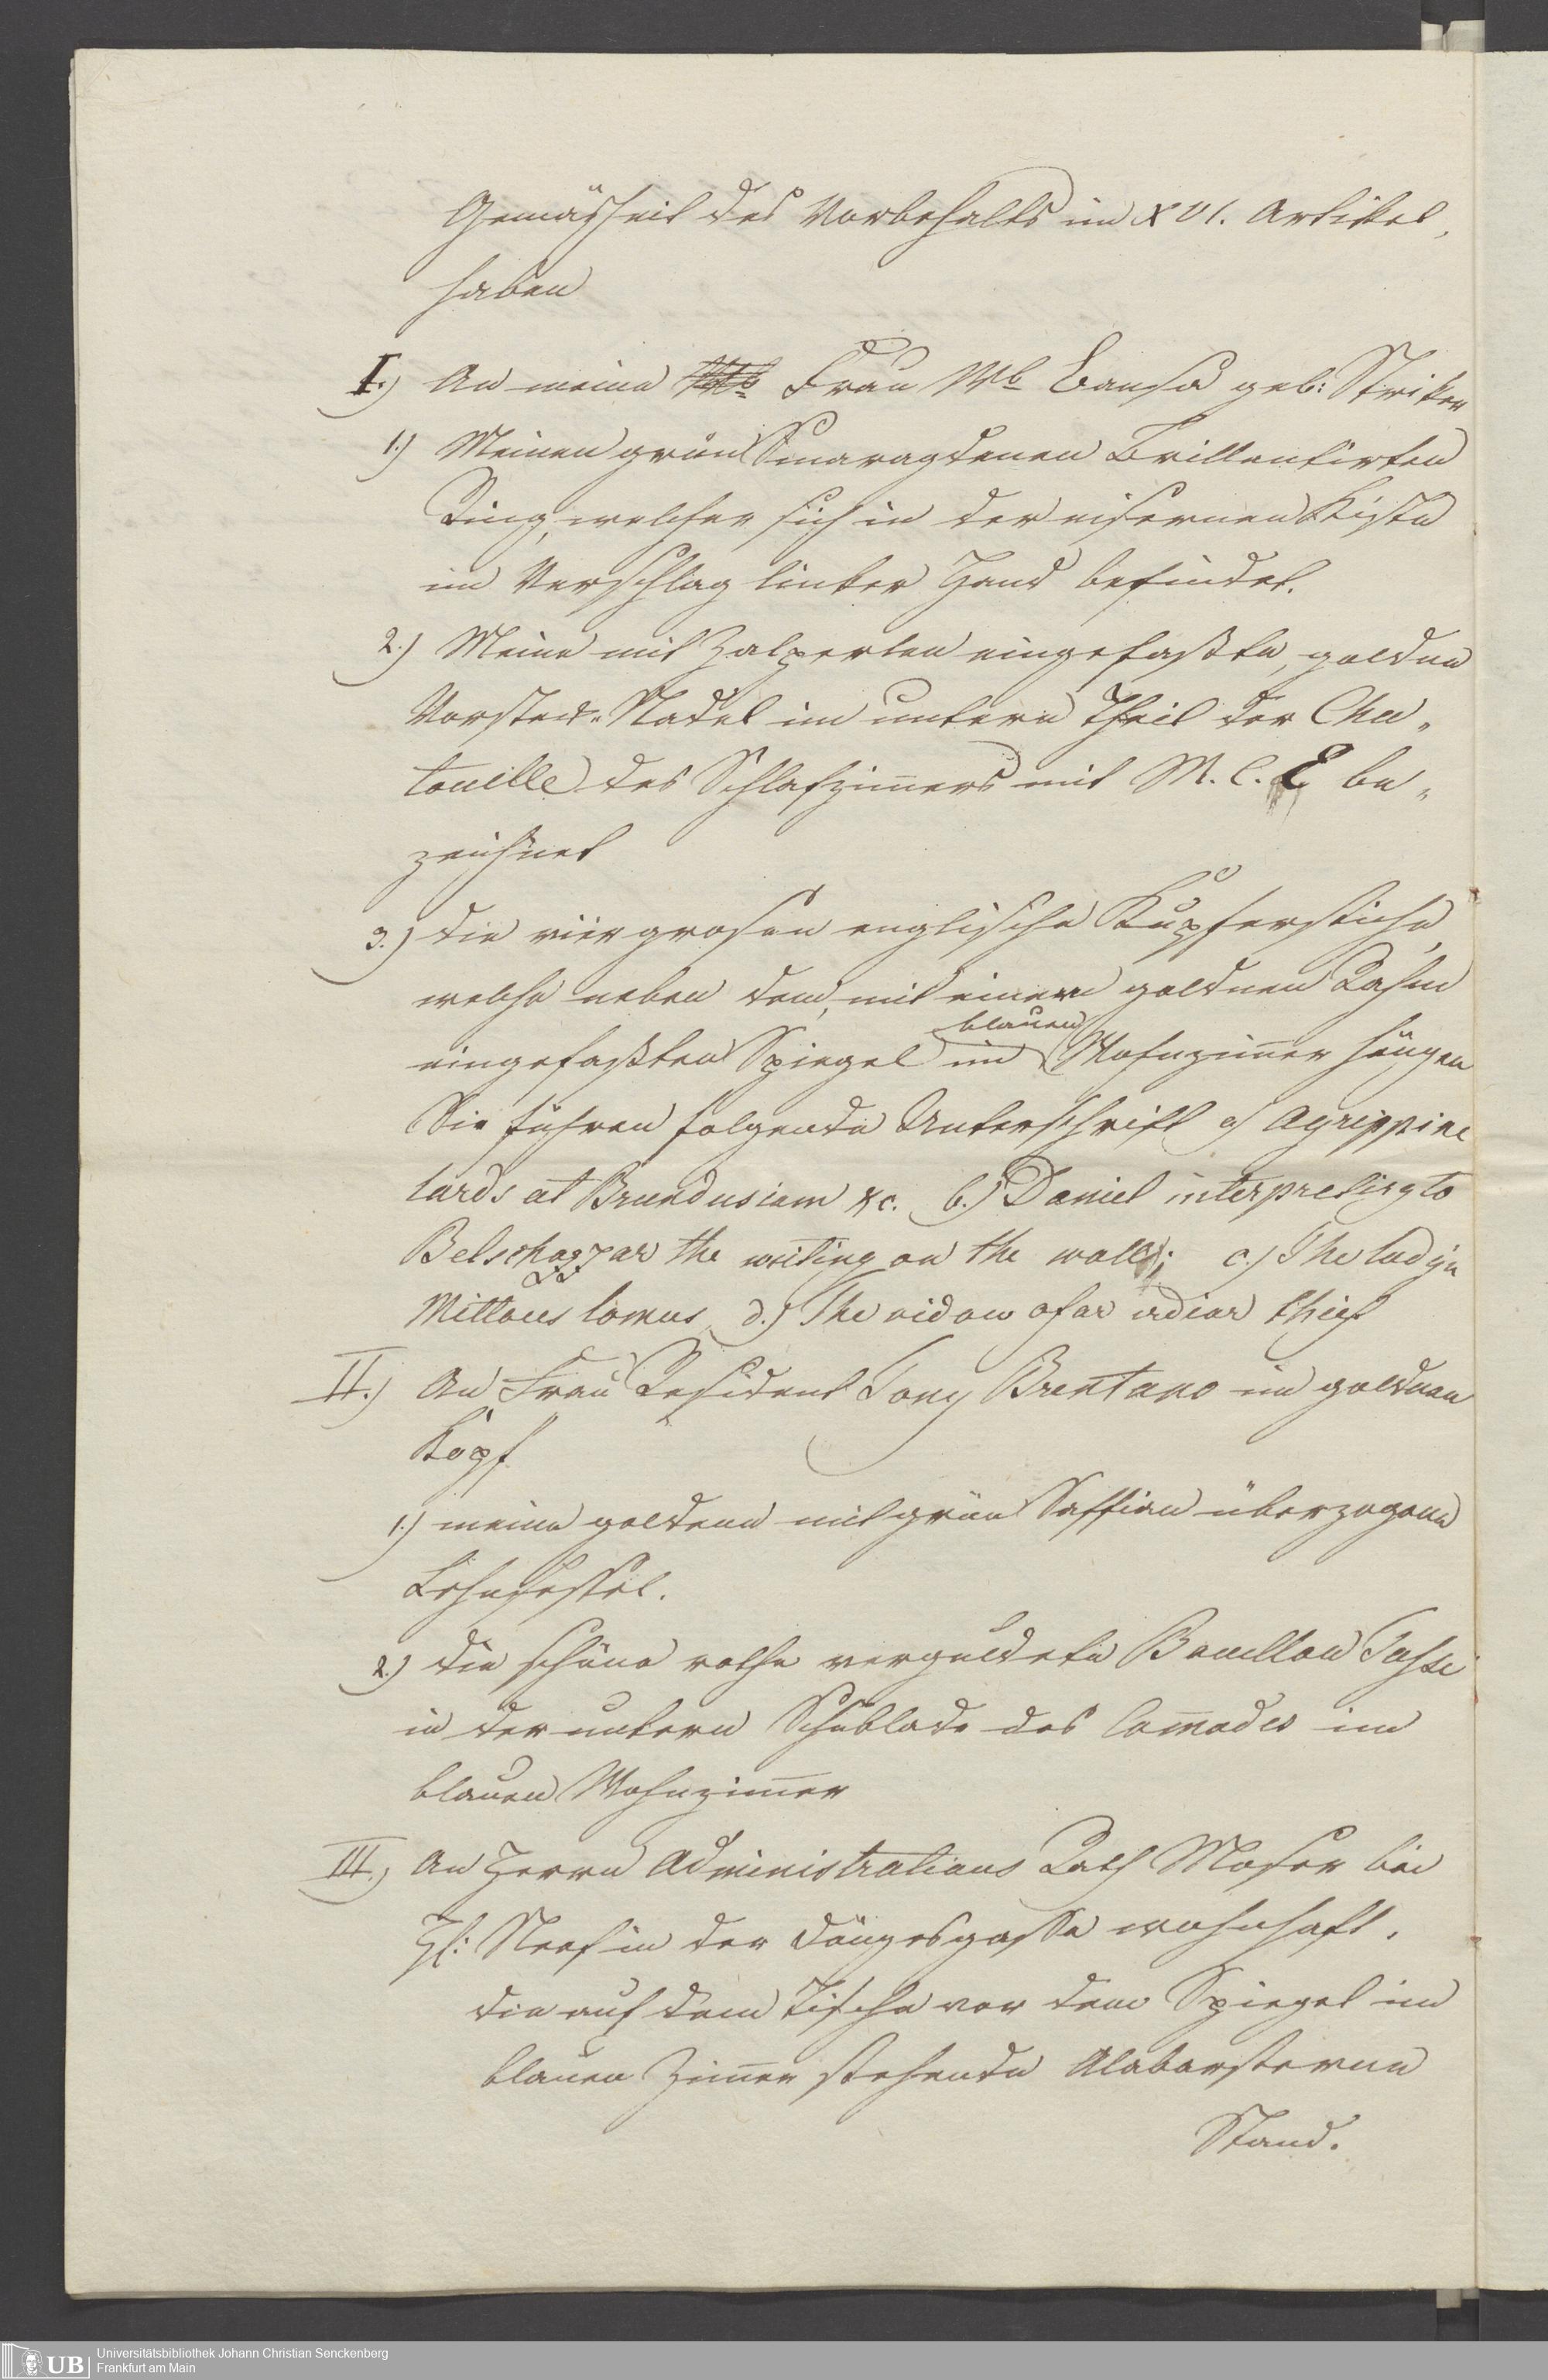 Gemäsheit des Vorbehalts im XVI. Artikel,
haben
I.) An meine Frau Wb Bansa geb: Striker
1.) Meinen grün Smaragdenen Brillantirten
Ring, welcher sich in der eisernen Kiste
im Verschlag linker Hand befindet.
2.) Meine mit Zalperlen eingefaßte, goldne
Vorsteck-Nadel im untern Theil der Cha„
touille des Schlafzimers mit M. C. E be„
zeichnet
3.) die vier grosen englische Kupferstiche,
welche neben dem, mit einem goldnen Rahm
blauen
eingefaßten Spiegel im Wohnzimer hängen
Sie führen folgende Unterschrift a) Agrippine
lards at Brundusium &c. b.) Daniel interpreting to
Belschazzar the writing on the wall; c.) The lady in
Mittons Comus, d.) The vidow of an indian thief
II.) An Frau Resident Tony Brentano im goldnen
Kopf
1.) meine goldene mit grün Saffian überzogene
Lehnsessel.
2.) die schöne rothe verguldete Bouillon Tasse
in der untern Schublade des Comodes im
blauen Wohnzimer
III.) An Herrn Administrations Rath Moser bei
H: Neef in der Döngesgasse wohnhaft.
die auf dem Tische vor dem Spiegel im
blauen Zimer stehende Alabasterne
Stand.
Universitätsbibliothek Johann Christian Senckenberg
Frankfurt am Main
UB